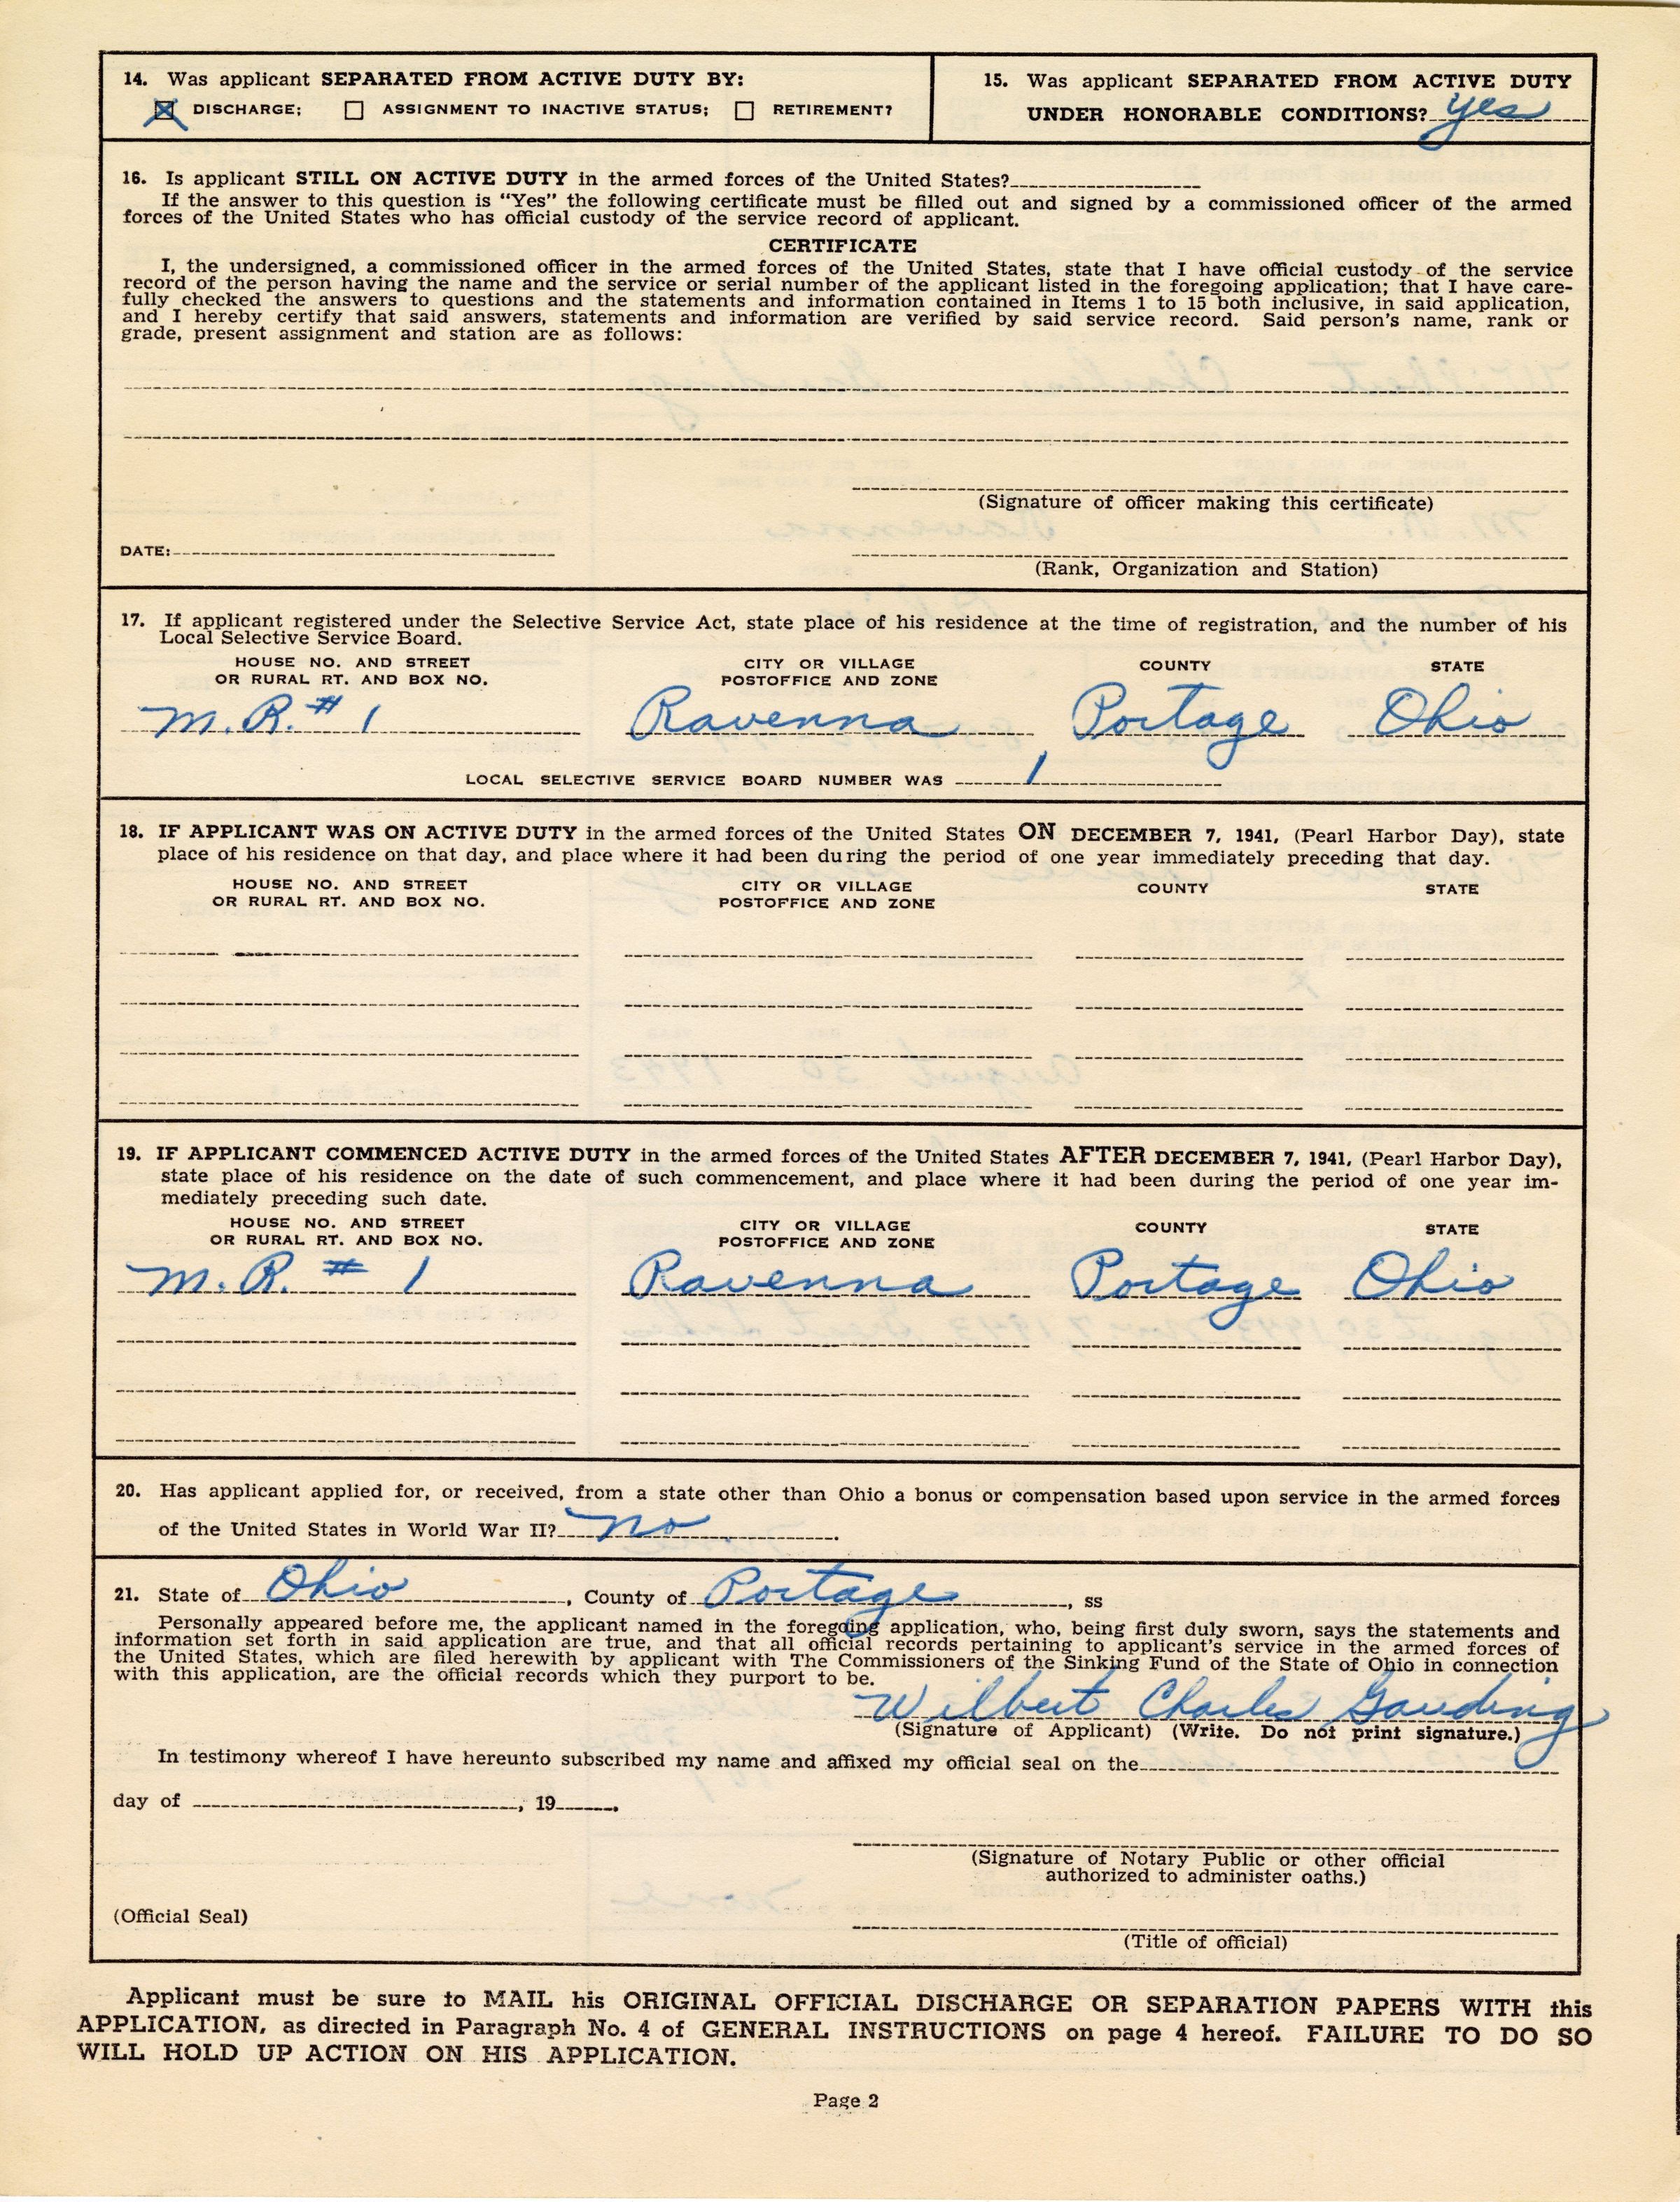 14. Was applicant SEPARATED FROM ACTIVE DUTY BY:
☒ DISCHARGE; ☐ ASSIGNMENT TO INACTIVE STATUS; ☐ RETIREMENT?
15. Was applicant SEPARATED FROM ACTIVE DUTY
UNDER HONORABLE CONDITIONS? yes
16. Is applicant STILL ON ACTIVE DUTY in the armed forces of the United States?
If the answer to this question is "Yes" the following certificate must be filled out and signed by a commissioned officer of the armed
forces of the United States who has official custody of the service record of applicant.
CERTIFICATE
I, the undersigned, a commissioned officer in the armed forces of the United States, state that I have official custody of the service
record of the person having the name and the service or serial number of the applicant listed in the foregoing application; that I have care-
fully checked the answers to questions and the statements and information contained in Items 1 to 15 both inclusive, in said application,
and I hereby certify that said answers, statements and information are verified by said service record. Said person's name, rank or
grade, present assignment and station are as follows:
(Signature of officer making this certificate)
DATE:
(Rank, Organization and Station)
17. If applicant registered under the Selective Service Act, state place of his residence at the time of registration, and the number of his
Local Selective Service Board.
HOUSE NO. AND STREET CITY OR VILLAGE COUNTY STATE
OR RURAL RT. AND BOX NO. POSTOFFICE AND ZONE
M.R. # 1 Ravenna Portage Ohio
LOCAL SELECTIVE SERVICE BOARD NUMBER WAS 1
18. IF APPLICANT WAS ON ACTIVE DUTY in the armed forces of the United States ON DECEMBER 7, 1941, (Pearl Harbor Day), state
place of his residence on that day, and place where it had been during the period of one year immediately preceding that day.
HOUSE NO. AND STREET CITY OR VILLAGE COUNTY STATE
OR RURAL RT. AND BOX NO. POSTOFFICE AND ZONE
19. IF APPLICANT COMMENCED ACTIVE DUTY in the armed forces of the United States AFTER DECEMBER 7, 1941, (Pearl Harbor Day),
state place of his residence on the date of such commencement, and place where it had been during the period of one year im-
mediately preceding such date.
HOUSE NO. AND STREET CITY OR VILLAGE COUNTY STATE
OR RURAL RT. AND BOX NO. POSTOFFICE AND ZONE
M.R. # 1 Ravenna Portage Ohio
20. Has applicant applied for, or received, from a state other than Ohio a bonus or compensation based upon service in the armed forces
of the United States in World War II? no .
21. State of Ohio, County of Portage, ss
Personally appeared before me, the applicant named in the foregoing application, who, being first duly sworn, says the statements and
information set forth in said application are true, and that all official records pertaining to applicant's service in the armed forces of
the United States, which are filed herewith by applicant with The Commissioners of the Sinking Fund of the State of Ohio in connection
with this application, are the official records which they purport to be.
Wilbert Charles Gauding
(Signature of Applicant) (Write. Do not print signature.)
In testimony whereof I have hereunto subscribed my name and affixed my official seal on the
day of , 19 .
(Signature of Notary Public or other official
authorized to administer oaths.)
(Official Seal)
(Title of official)
Applicant must be sure to MAIL his ORIGINAL OFFICIAL DISCHARGE OR SEPARATION PAPERS WITH this
APPLICATION, as directed in Paragraph No. 4 of GENERAL INSTRUCTIONS on page 4 hereof. FAILURE TO DO SO
WILL HOLD UP ACTION ON HIS APPLICATION.
Page 2